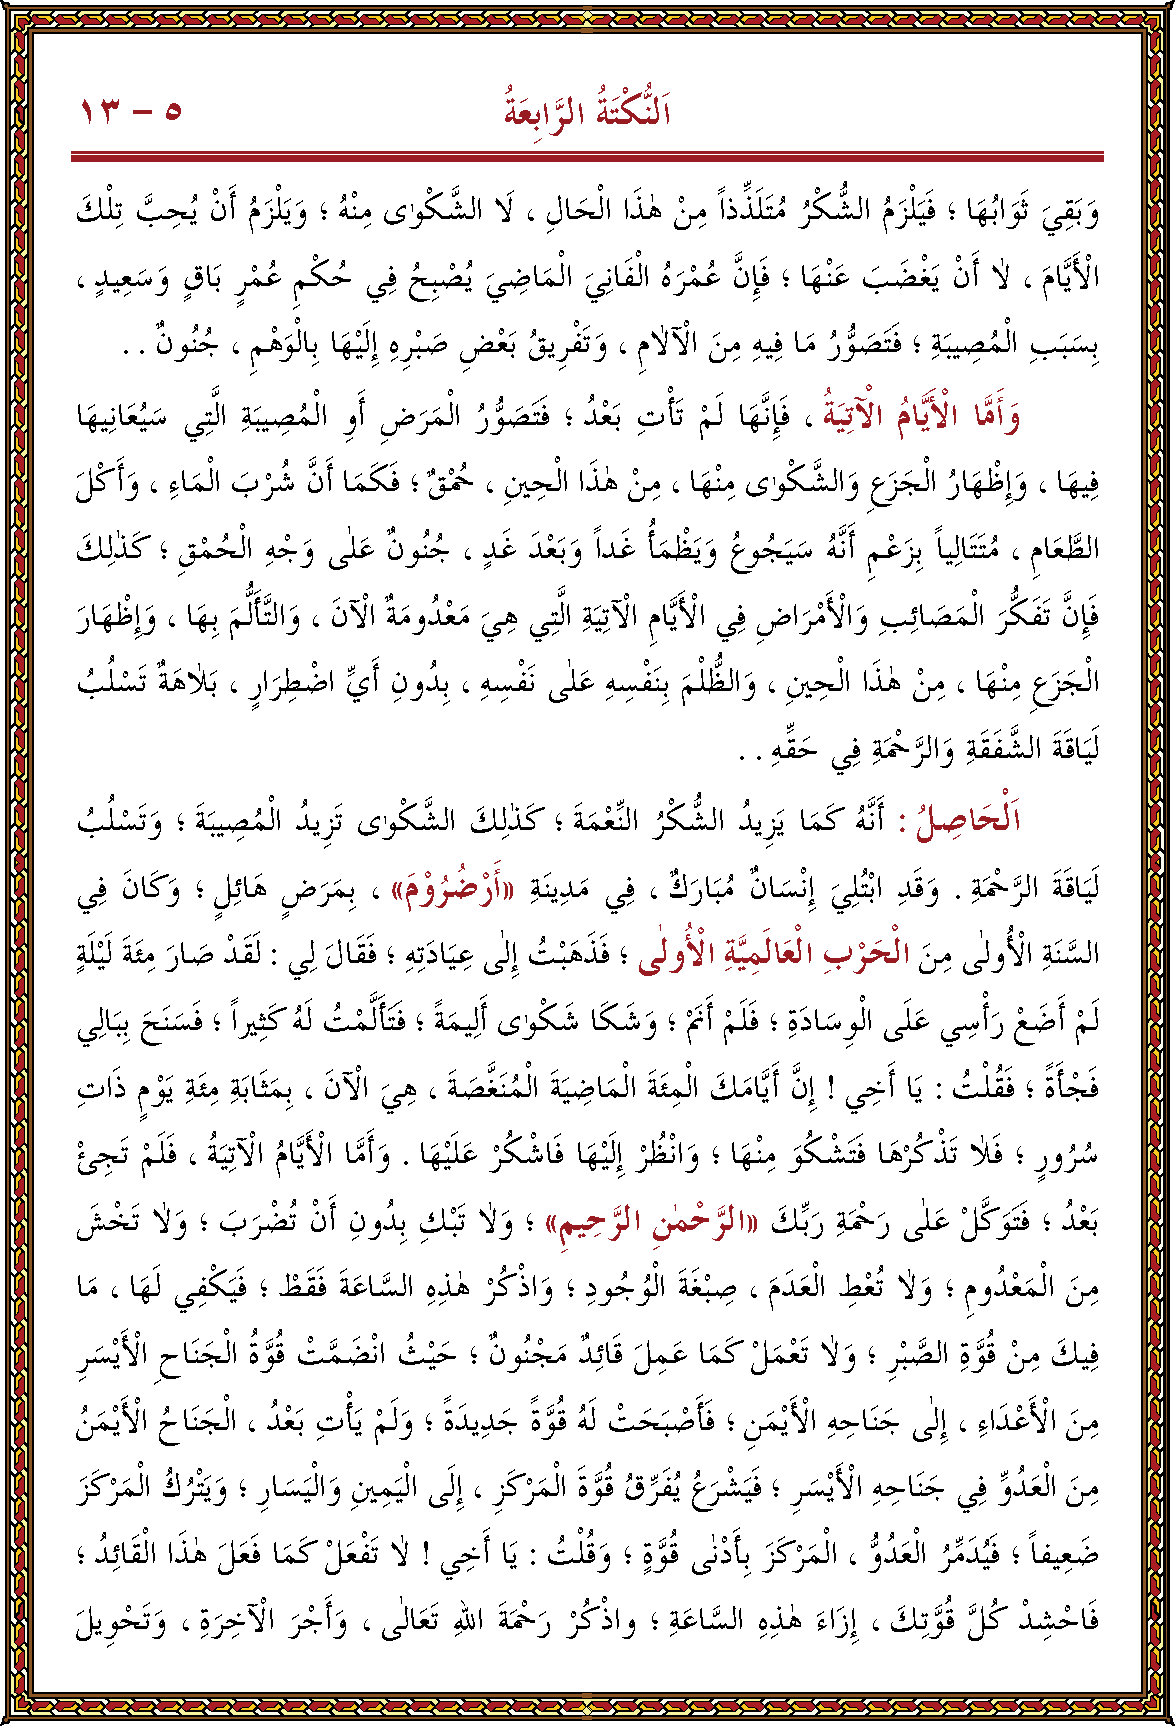 اَلنُّكْتَةُ الرَّابِعَةُ ٥ – ١٣
وَبَقِيَ ثَوَابُهَا ؛ فَيَلْزَمُ الشُّكْرُ مُتَلَذِّذاً مِنْ هٰذَا الْحَالِ ، لَا الشَّكْوٰى مِنْهُ ؛ وَيَلْزَمُ أَنْ يُحِبَّ تِلْكَ
الْأَيَّامَ ، لَا أَنْ يَغْضَبَ عَنْهَا ؛ فَإِنَّ عُمْرَهُ الْفَانِيَ الْمَاضِيَ يُصْبِحُ فِي حُكْمِ عُمْرٍ بَاقٍ وَسَعِيدٍ ،
بِسَبَبِ الْمُصِيبَةِ ؛ فَتَصَوُّرُ مَا فِيهِ مِنَ الْآلَامِ ، وَتَفْرِيقُ بَعْضِ صَبْرِهِ إِلَيْهَا بِالْوَهْمِ ، جُنُونٌ . .
وَأَمَّا الْأَيَّامُ الْآتِيَةُ ، فَإِنَّهَا لَمْ تَأْتِ بَعْدُ ؛ فَتَصَوُّرُ الْمَرَضِ أَوِ الْمُصِيبَةِ الَّتِي سَيُعَانِيهَا
فِيهَا ، وَإِظْهَارُ الْجَزَعِ وَالشَّكْوٰى مِنْهَا ، مِنْ هٰذَا الْحِينِ ، حُمْقٌ ؛ فَكَمَا أَنَّ شُرْبَ الْمَاءِ ، وَأَكْلَ
الطَّعَامِ ، مُتَتَالِياً بِزَعْمِ أَنَّهُ سَيَجُوعُ وَيَظْمَأُ غَداً وَبَعْدَ غَدٍ ، جُنُونٌ عَلٰى وَجْهِ الْحُمْقِ ؛ كَذٰلِكَ
فَإِنَّ تَفَكُّرَ الْمَصَائِبِ وَالْأَمْرَاضِ فِي الْأَيَّامِ الْآتِيَةِ الَّتِي هِيَ مَعْدُومَةٌ الْآنَ ، وَالتَّأَلُّمَ بِهَا ، وَإِظْهَارَ
الْجَزَعِ مِنْهَا ، مِنْ هٰذَا الْحِينِ ، وَالظُّلْمَ بِنَفْسِهِ عَلٰى نَفْسِهِ ، بِدُونِ أَيِّ اضْطِرَارٍ ، بَلَاهَةٌ تَسْلُبُ
لَيَاقَةَ الشَّفَقَةِ وَالرَّحْمَةِ فِي حَقِّهِ . .
اَلْحَاصِلُ : أَنَّهُ كَمَا يَزِيدُ الشُّكْرُ النِّعْمَةَ ؛ كَذٰلِكَ الشَّكْوٰى تَزِيدُ الْمُصِيبَةَ ؛ وَتَسْلُبُ
لَيَاقَةَ الرَّحْمَةِ . وَقَدِ ابْتُلِيَ إِنْسَانٌ مُبَارَكٌ ، فِي مَدِينَةِ «أَرْضُرُوْمَ» ، بِمَرَضٍ هَائِلٍ ؛ وَكَانَ فِي
السَّنَةِ الْأُولٰى مِنَ الْحَرْبِ الْعَالَمِيَّةِ الْأُولٰى ؛ فَذَهَبْتُ إِلٰى عِيَادَتِهِ ؛ فَقَالَ لِي : لَقَدْ صَارَ مِئَةَ لَيْلَةٍ
لَمْ أَضَعْ رَأْسِي عَلَى الْوِسَادَةِ ؛ فَلَمْ أَنَمْ ؛ وَشَكَا شَكْوٰى أَلِيمَةً ؛ فَتَأَلَّمْتُ لَهُ كَثِيراً ؛ فَسَنَحَ بِبَالِي
فَجْأَةً ؛ فَقُلْتُ : يَا أَخِي ! إِنَّ أَيَّامَكَ الْمِئَةَ الْمَاضِيَةَ الْمُنَغَّصَةَ ، هِيَ الْآنَ ، بِمَثَابَةِ مِئَةِ يَوْمٍ ذَاتِ
سُرُورٍ ؛ فَلَا تَذْكُرْهَا فَتَشْكُوَ مِنْهَا ؛ وَانْظُرْ إِلَيْهَا فَاشْكُرْ عَلَيْهَا . وَأَمَّا الْأَيَّامُ الْآتِيَةُ ، فَلَمْ تَجِئْ
بَعْدُ ؛ فَتَوَكَّلْ عَلٰى رَحْمَةِ رَبِّكَ «الرَّحْمٰنِ الرَّحِيمِ» ؛ وَلَا تَبْكِ بِدُونِ أَنْ تُضْرَبَ ؛ وَلَا تَخْشَ
مِنَ الْمَعْدُومِ ؛ وَلَا تُعْطِ الْعَدَمَ ، صِبْغَةَ الْوُجُودِ ؛ وَاذْكُرْ هٰذِهِ السَّاعَةَ فَقَطْ ؛ فَيَكْفِي لَهَا ، مَا
فِيكَ مِنْ قُوَّةِ الصَّبْرِ ؛ وَلَا تَعْمَلْ كَمَا عَمِلَ قَائِدٌ مَجْنُونٌ ؛ حَيْثُ انْضَمَّتْ قُوَّةُ الْجَنَاحِ الْأَيْسَرِ
مِنَ الْأَعْدَاءِ ، إِلٰى جَنَاحِهِ الْأَيْمَنِ ؛ فَأَصْبَحَتْ لَهُ قُوَّةً جَدِيدَةً ؛ وَلَمْ يَأْتِ بَعْدُ ، الْجَنَاحُ الْأَيْمَنُ
مِنَ الْعَدُوِّ فِي جَنَاحِهِ الْأَيْسَرِ ؛ فَيَشْرَعُ يُفَرِّقُ قُوَّةَ الْمَرْكَزِ ، إِلَى الْيَمِينِ وَالْيَسَارِ ؛ وَيَتْرُكُ الْمَرْكَزَ
ضَعِيفاً ؛ فَيُدَمِّرُ الْعَدُوُّ ، الْمَرْكَزَ بِأَدْنٰى قُوَّةٍ ؛ وَقُلْتُ : يَا أَخِي ! لَا تَفْعَلْ كَمَا فَعَلَ هٰذَا الْقَائِدُ ؛
فَاحْشِدْ كُلَّ قُوَّتِكَ ، إِزَاءَ هٰذِهِ السَّاعَةِ ؛ واذْكُرْ رَحْمَةَ اللهِ تَعَالٰى ، وَأَجْرَ الْآخِرَةِ ، وَتَحْوِيلَ